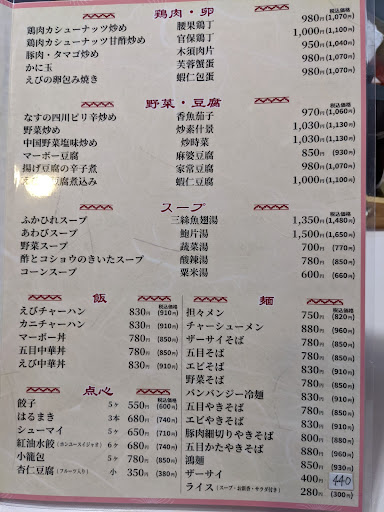 鶏肉・卵
税込価格
鶏肉カシューナッツ炒め 腰果鶏丁 980円(1,070円)
鶏肉カシューナッツ甘酢炒め 官保鶏丁 1,000円(1,100円)
豚肉・タマゴ炒め 木須肉片 950円(1,040円)
かに玉 芙蓉蟹蛋 980円(1,070円)
えびの卵包み焼き 蝦仁包蛋 980円(1,070円)
野菜・豆腐
税込価格
なすの四川ピリ辛炒め 香魚茄子 970円(1,060円)
野菜炒め 炒素什景 1,030円(1,130円)
中国野菜塩味炒め 炒時菜 1,030円(1,130円)
マーボー豆腐 麻婆豆腐 850円(930円)
揚げ豆腐の辛子煮 家常豆腐 980円(1,070円)
豆腐煮込み 蝦仁豆腐 1,000円(1,100円)
スープ
税込価格
ふかひれスープ 三絲魚翅湯 1,350円(1,480円)
あわびスープ 鮑片湯 1,500円(1,650円)
野菜スープ 蔬菜湯 700円(770円)
酢とコショウのきいたスープ 酸辣湯 780円(850円)
コーンスープ 粟米湯 600円(660円)
飯
税込価格
えびチャーハン 830円(910円)
カニチャーハン 830円(910円)
マーボー丼 780円(850円)
五目中華丼 830円(910円)
えび中華丼 830円(910円)
点心
税込価格
餃子 5ヶ 550円(600円)
はるまき 3本 680円(740円)
シューマイ 5ヶ 650円(710円)
紅油水餃(ホンユースイジャオ) 6ヶ 680円(740円)
小籠包 5ヶ 780円(850円)
杏仁豆腐(フルーツ入り) 小 350円(380円)
麺
税込価格
担々メン 750円(820円)
チャーシューメン 880円(960円)
ザーサイそば 780円(850円)
五目そば 780円(850円)
エビそば 830円(910円)
野菜そば 780円(850円)
バンバンジー冷麺 830円(910円)
五目やきそば 830円(910円)
エビやきそば 830円(910円)
豚肉細切りやきそば 800円(880円)
五目かたやきそば 880円(960円)
鴻麺 850円(930円)
ザーサイ 400円 440
ライス(スープ・お新香・サラダ付き) 280円(300円)